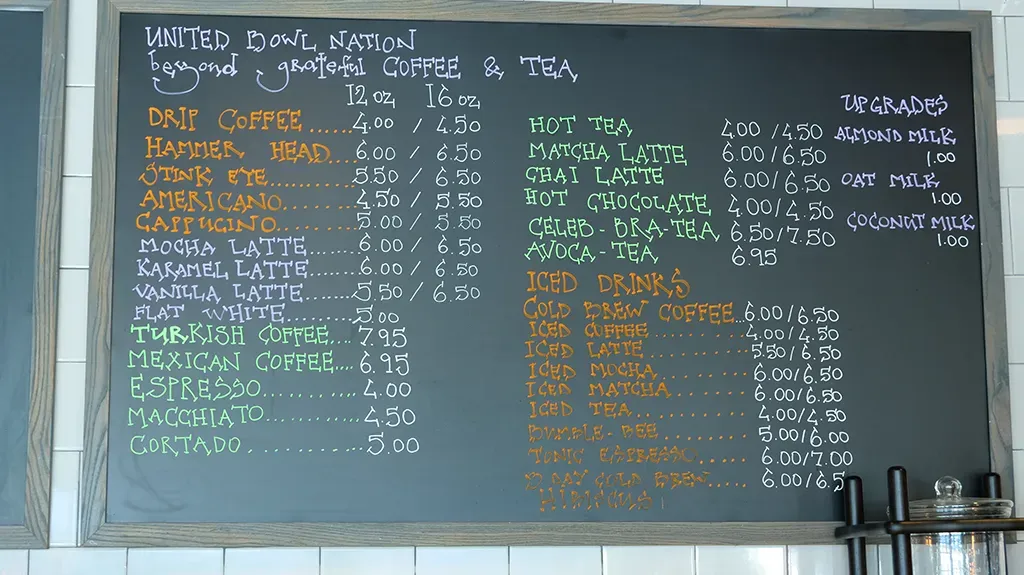 UNITED BOWL NATION
beyond grateful COFFEE & TEA
12 oz 16 oz
DRIP COFFEE ...... 4.00 / 4.50
HAMMER HEAD.... 6.00 / 6.50
STINK EYE.......... 5.50 / 6.50
AMERICANO........ 4.50 / 5.50
CAPPUCINO......... 5.00 / 5.50
MOCHA LATTE....... 6.00 / 6.50
KARAMEL LATTE...... 6.00 / 6.50
VANILLA LATTE....... 5.50 / 6.50
FLAT WHITE.......... 5.00
TURKISH COFFEE.... 7.95
MEXICAN COFFEE.... 6.95
ESPRESSO............ 4.00
MACCHIATO............. 4.50
CORTADO............. 5.00
HOT TEA 4.00 / 4.50
MATCHA LATTE 6.00 / 6.50
CHAI LATTE 6.00 / 6.50
HOT CHOCOLATE 4.00 / 4.50
CELEB-BRA-TEA 6.50 / 7.50
AVOCA-TEA 6.95
ICED DRINKS
COLD BREW COFFEE... 6.00 / 6.50
ICED COFFEE........... 4.00 / 4.50
ICED LATTE............ 5.50 / 6.50
ICED MOCHA.......... 6.00 / 6.50
ICED MATCHA......... 6.00 / 6.50
ICED TEA............. 4.00 / 4.50
BUMBLE-BEE......... 5.00 / 6.00
TONIC ESPRESSO...... 6.00 / 7.00
DAY COLD BREW..... 6.00 / 6.5
UPGRADES
ALMOND MILK
1.00
OAT MILK
1.00
COCONUT MILK
1.00